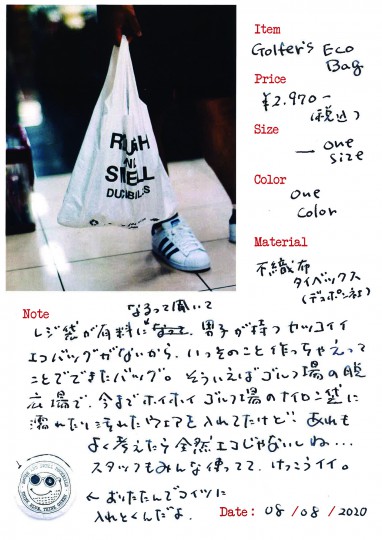 ROUGH
AND
SWELL
DUCKBILLS
Item
Golfer's Eco
Bag
Price
¥2.970-
(税込)
Size
— one
size
Color
one
color
Material
不織布
タイベックス
(デュポン社)
Note
なるって聞いて
レジ袋が有料に 男子が持つカッコイイ
エコバッグがないから、いっそのこと作っちゃえって
ことでできたバッグ。そういえばゴルフ場の脱
衣場で、今までホイホイゴルフ場のナイロン袋に
濡れたり汚れたウェアを入れてたけど、あれも
よく考えたら全然エコじゃないしね…
スタッフもみんな使ってて、けっこうイイ。
← おりたたんでコイツに
入れとくんだよ。
Date: 08/08/2020